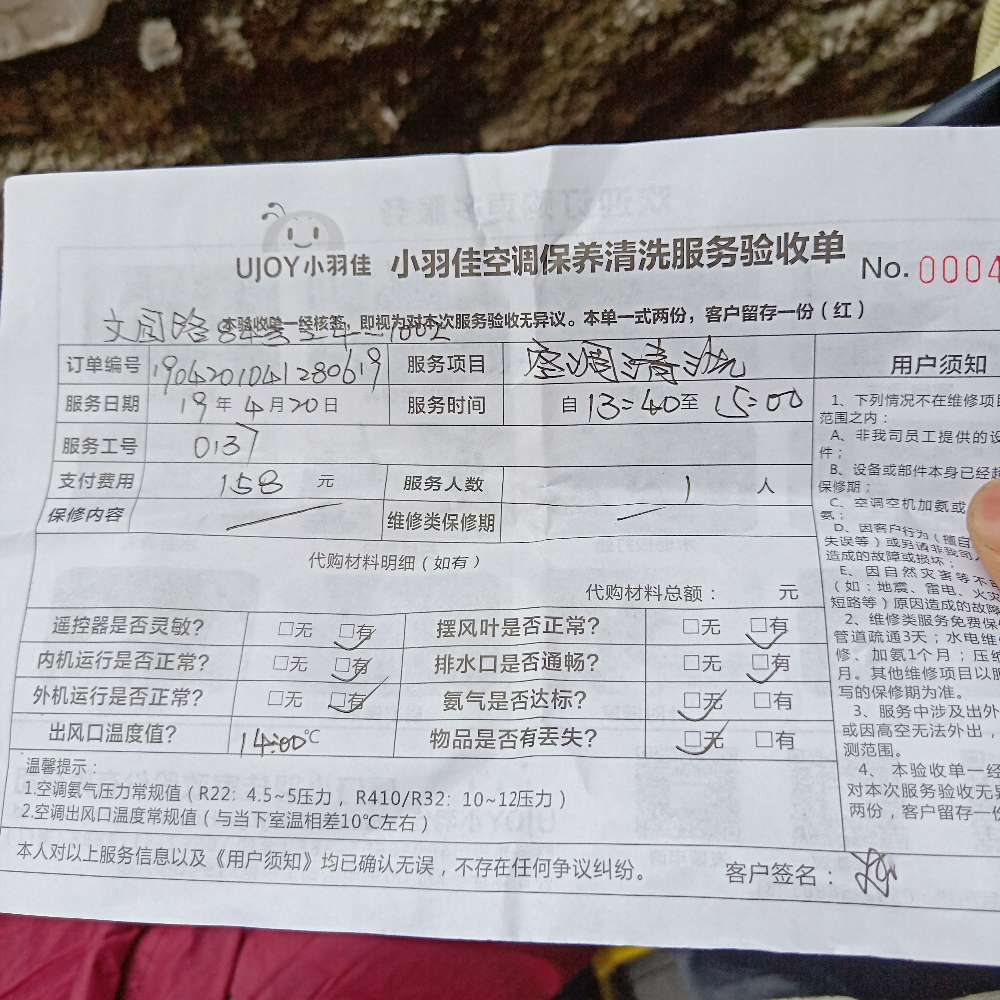 UJOY小羽佳 小羽佳空调保养清洗服务验收单 No. 0004
本验收单一经核签，即视为对本次服务验收无异议。本单一式两份，客户留存一份（红）
文园路
订单编号 1904201041280619 服务项目 空调清洗
服务日期 19年4月20日 服务时间 自13:40至15:00
服务工号 0137
支付费用 158 元 服务人数 1 人
保修内容 维修类保修期
代购材料明细（如有）
代购材料总额： 元
遥控器是否灵敏？ □无 □有 摆风叶是否正常？ □无 □有
内机运行是否正常？ □无 □有 排水口是否通畅？ □无 □有
外机运行是否正常？ □无 □有 氨气是否达标？ □无 □有
出风口温度值？ 14:00℃ 物品是否有丢失？ □无 □有
温馨提示：
1.空调氨气压力常规值（R22：4.5~5压力，R410/R32：10~12压力）
2.空调出风口温度常规值（与当下室温相差10℃左右）
本人对以上服务信息以及《用户须知》均已确认无误，不存在任何争议纠纷。 客户签名：
用户须知
1、下列情况不在维修项
范围之内：
A、非我司员工提供的设
件；
B、设备或部件本身已经超
保修期；
C、空调空机加氨或
氨；
D、因客户行为（擅自
失误等）或另请非我司
造成的故障或损坏；
E、因自然灾害等不可
（如：地震、雷电、火灾
短路等）原因造成的故障
2、维修类服务免费保
管道疏通3天；水电维
修、加氨1个月；压缩
月。其他维修项目以服
写的保修期为准。
3、服务中涉及出外
或因高空无法外出，
测范围。
4、本验收单一经
对本次服务验收无异
两份，客户留存一份